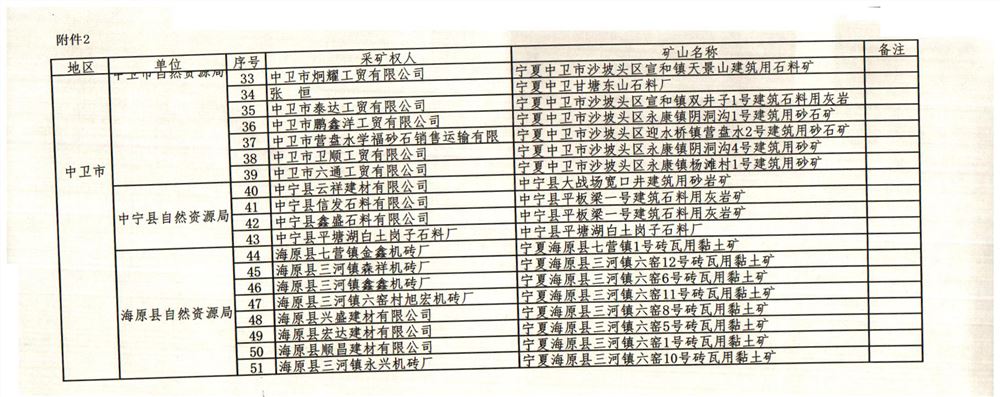 附件2
地区 单位 序号 采矿权人 矿山名称 备注
中卫市 中卫市自然资源局 33 中卫市炯耀工贸有限公司 宁夏中卫市沙坡头区宣和镇天景山建筑用石料矿
34 张 恒 宁夏中卫甘塘东山石料厂
35 中卫市泰达工贸有限公司 宁夏中卫市沙坡头区宣和镇双井子1号建筑石料用灰岩
36 中卫市鹏鑫洋工贸有限公司 宁夏中卫市沙坡头区永康镇阴洞沟1号建筑用砂石矿
37 中卫市营盘水学福砂石销售运输有限 宁夏中卫市沙坡头区迎水桥镇营盘水2号建筑用砂石矿
38 中卫市卫顺工贸有限公司 宁夏中卫市沙坡头区永康镇阴洞沟4号建筑用砂矿
39 中卫市六通工贸有限公司 宁夏中卫市沙坡头区永康镇杨滩村1号建筑用砂矿
中宁县自然资源局 40 中宁县云祥建材有限公司 中宁县大战场宽口井建筑用砂岩矿
41 中宁县信发石料有限公司 中宁县平板梁一号建筑石料用灰岩矿
42 中宁县鑫盛石料有限公司 中宁县平板梁一号建筑石料用灰岩矿
43 中宁县平塘湖白土岗子石料厂 中宁县平塘湖白土岗子石料厂
海原县自然资源局 44 海原县七营镇金鑫机砖厂 宁夏海原县七营镇1号砖瓦用黏土矿
45 海原县三河镇森祥机砖厂 宁夏海原县三河镇六窑12号砖瓦用黏土矿
46 海原县三河镇鑫鑫机砖厂 宁夏海原县三河镇六窑6号砖瓦用黏土矿
47 海原县三河镇六窑村旭宏机砖厂 宁夏海原县三河镇六窑11号砖瓦用黏土矿
48 海原县兴盛建材有限公司 宁夏海原县三河镇六窑8号砖瓦用黏土矿
49 海原县宏达建材有限公司 宁夏海原县三河镇六窑5号砖瓦用黏土矿
50 海原县顺昌建材有限公司 宁夏海原县三河镇六窑1号砖瓦用黏土矿
51 海原县三河镇永兴机砖厂 宁夏海原县三河镇六窑10号砖瓦用黏土矿